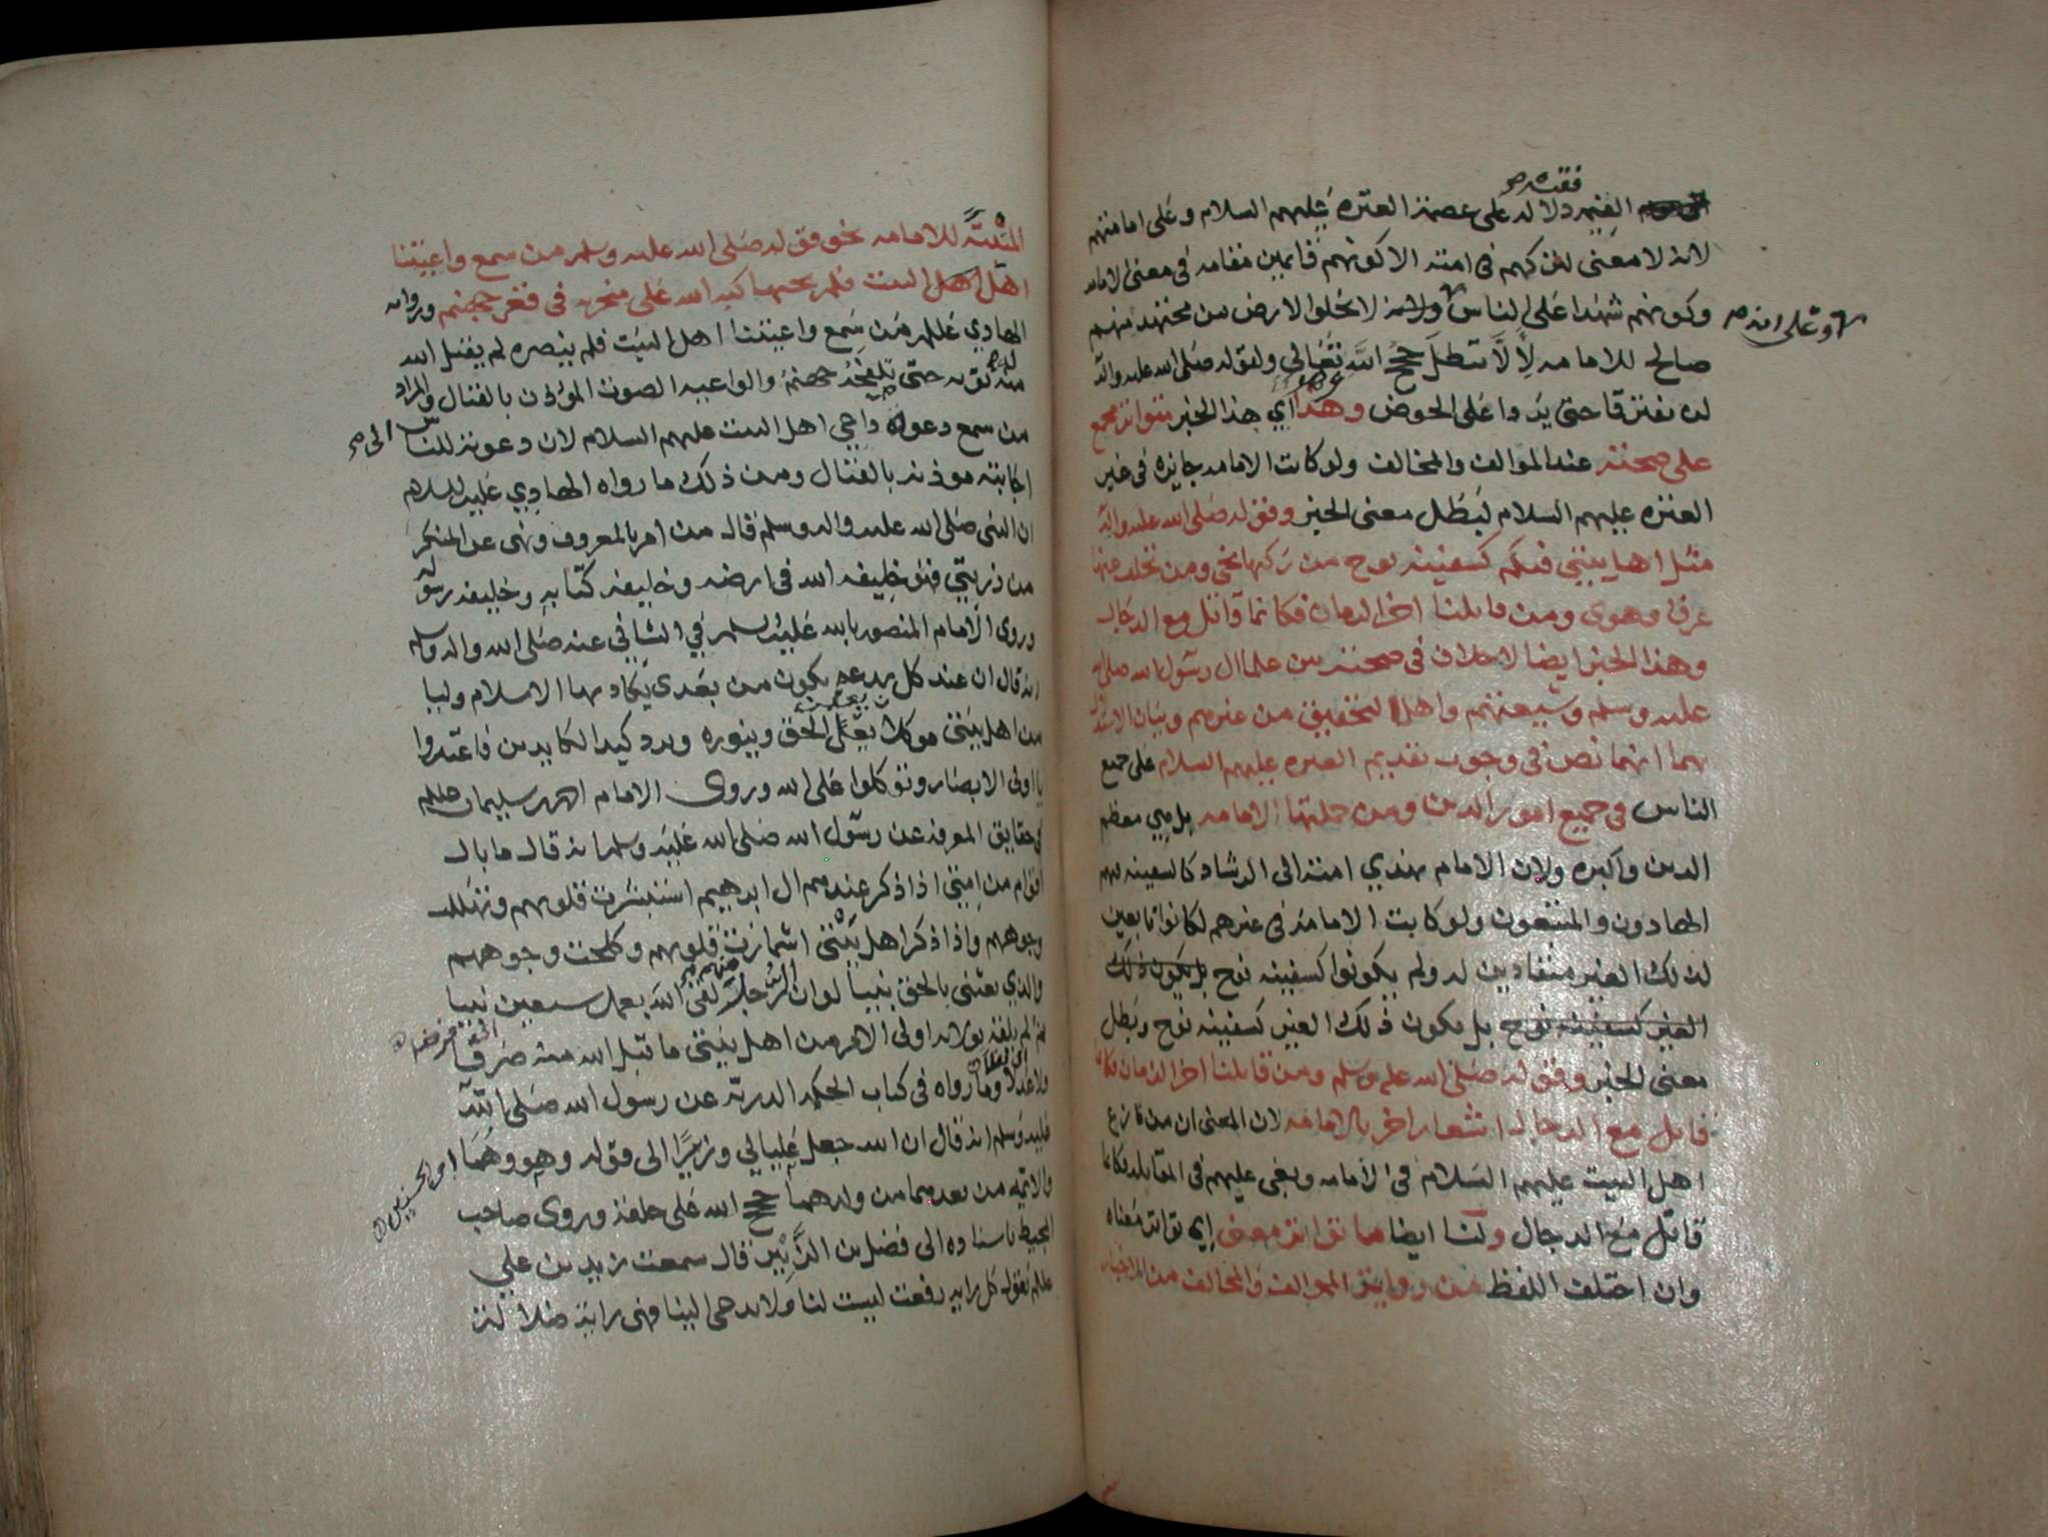 ففيه
الخبر دلاله على عصمة العتره عليهم السلام وعلى امامتهم
لانه لا معنى لتركهم في امته الا كونهم قائمين مقامه في معنى الامامه
وكونهم شهدا على الناس ولانه لا تخلوا الارض من مجتهد منهم
وعلى انه
صالح للامامه لئلا تبطل حجج الله تعالى ولقوله صلى الله عليه واله
لن يفترقا حتى يردا على الحوض وهذا اي هذا الخبر متواتر مجمع
على صحته عند الموالف والمخالف ولو كانت الامامه جايزه في غير
العتره عليهم السلام لبطل معنى الخبر وقوله صلى الله عليه واله
مثل اهل بيتي فيكم كسفينة نوح من ركبها نجى ومن تخلف عنها
غرق وهوى ومن قاتلنا اخر الزمان فكانما قاتل مع الدجال
وهذا الخبر ايضا لا خلاف في صحته بين علما ال رسول الله صلى الله
عليه وسلم وشيعتهم واهل التحقيق من غيرهم وبيان الاستدلال
بهما انهما نص في وجوب تقديم العتره عليهم السلام على جميع
الناس في جميع امور الدين ومن جملتها الامامه بل هي معظم
الدين واكبره ولان الامام يهدي امته الى الرشاد كالسفينه فهم
الهادون والمتبعون ولو كانت الامامة في غيرهم لكانوا تابعين
لذلك الغير منقادين له ولم يكونوا كسفينة نوح بل يكون ذلك
الغير كسفينة نوح بل يكون ذلك الغير كسفينة نوح وبطل
معنى الخبر وقوله صلى الله عليه وسلم ومن قاتلنا اخر الزمان فكانما
قاتل مع الدجال اشعار اخر بالامامه لان المعنى ان من نازع
اهل البيت عليهم السلام في الامامه وبغى عليهم في المقابله فكانما
قاتل مع الدجال ولنا ايضا ما تواتر معنى اي تواتر معناه
وان اختلف اللفظ من رواية الموالف والمخالف من الاخبار
المثبتة للامامه نحو قوله صلى الله عليه وسلم من سمع واعيتنا
اهل البيت فلم يجبها كبه الله على منخريه في قعر جهنم وروايه
الهادي عليلم من سمع واعيتنا اهل البيت فلم ينصره لم يقبل الله
له توبه حتى تلفحه جهنم والواعيه الصوت المؤذن بالقتال والمراد
من سمع دعوة داعي اهل البيت عليهم السلام لان دعوته للناس الى
اجابته موذنه بالقتال ومن ذلك ما رواه الهادي عليه السلام
ان النبي صلى الله عليه واله وسلم قال من امر بالمعروف ونهى عن المنكر
من ذريتي فهو خليفة الله في ارضه وخليفة كتابه وخليفة رسوله
وروى الامام المنصور بالله عليه السلام في الشافي عنه صلى الله واله وسلم
انه قال ان عند كل بدعه يكون من بعدي يكاد بها الاسلام وليا
من اهل بيتي موكلا يعلن الحق وينوره ويرد كيد الكايدين فاعتبروا
يا اولي الابصار وتوكلوا على الله وروى الامام احمد بن سليمان عليلم
في حقايق المعرفه عن رسول الله صلى الله عليه وسلم انه قال ما بال
اقوام من امتي اذا ذكر عندهم ال ابراهيم استبشرت قلوبهم وتهللت
وجوههم واذا ذكر اهل بيتي اشمازت قلوبهم وكلحت وجوههم
والذي بعثني بالحق نبيا لو ان الرجل منهم لقى الله بعمل سبعين نبيا
ثم لم يلقه بولاية اولي الامر من اهل بيتي ما قبل الله منه صرفا
ولا عدلا وما رواه في كتاب الحكمه الدريه عن رسول الله صلى الله
عليه وسلم انه قال ان الله جعل عليا لي وزيرا الى قوله وهو وهما ابو الحسنين
والائمه من بعدهما من ولدهما حجج الله على خلقه وروى صاحب
المحيط باسناده الى فضل بن الزبير قال سمعت زيد بن علي
عليلم يقول كل رايه رفعت ليست لنا ولا يدعى الينا فهي راية ضلاله